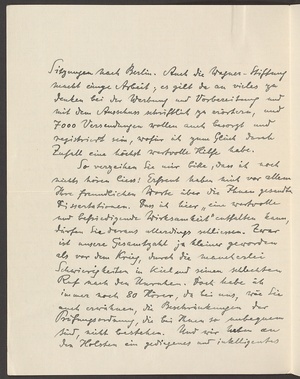 Sitzungen nach Berlin. Auch die Wagner-Stiftung
macht einige Arbeit; es gilt da an vieles zu
denken bei der Werbung und Vorbereibung und
mit dem Ausschuss schriftlich zu erörtern, und
7000 Versendungen wollen auch besorgt und
registriert sein, wofür ich zum Glück durch
Zufall eine höchst wertvolle Hilfe habe.
So verzeihen Sie mir bitte, dass ich noch
nichts hören liess! Erfreut haben mich vor allem
Ihre freundlichen Worte über die Ihnen gesandten
Dissertationen. Dass ich hier „eine wertvolle
und befriedigende Wirksamkeit" entfalten kann,
dürfen Sie daraus allerdings schliessen. Zwar
ist unsere Gesamtzahl ja kleiner geworden
als vor dem Krieg, durch die mancherlei
Schwierigkeiten in Kiel und seinen schlechten
Ruf nach den Unruhen. Doch habe ich
immer noch 80 Hörer, da bei uns, wie Sie
auch erwähnen, die Beschränkungen der
Prüfungsordnung, die bei Ihnen so unbequem
sind, nicht bestehen. Und wir haben an
den Holsten ein gediegenes und intelligentes